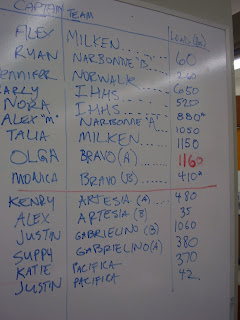 CAPTAIN TEAM
ALEX MILKEN 
RYAN NARBONNE "B" 60
JENNIFER NORWALK 260
CARLY IHHS 650
NORA IHHS 520
ALEX "M" NARBONNE "A" 880*
TALIA MILKEN 1050
OLGA BRAVO (A) 1150
MONICA BRAVO (B) 1160
410*
KENRY ARTESIA (A) 480
ALEX ARTESIA (B) 35
JUSTIN GABRIELINO (B) 1060
SUPPY GABRIELINO (A) 380
KATIE PACIFICA 370
JUSTIN PACIFICA 42